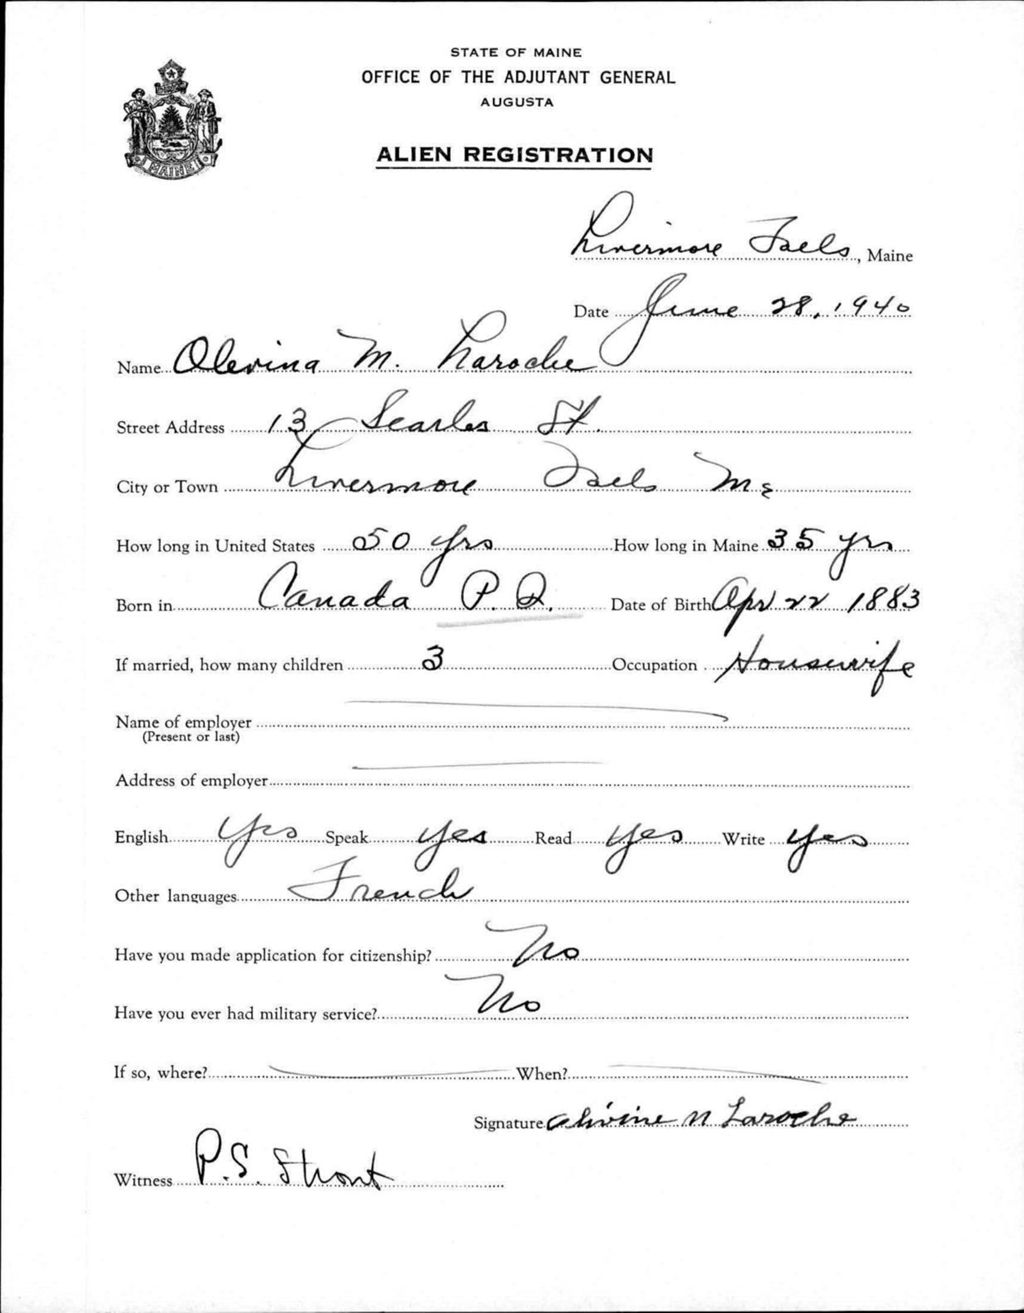 STATE OF MAINE
OFFICE OF THE ADJUTANT GENERAL
AUGUSTA
ALIEN REGISTRATION
MAINE
Livermore Falls, Maine
Date June 28, 1940
Name Olevina M. Laroche
Street Address 13 Searles St.
City or Town Livermore Falls Me
How long in United States 50 yrs How long in Maine 35 yrs
Born in Canada P.Q. Date of Birth Apr 22 1883
If married, how many children 3 Occupation Housewife
Name of employer
(Present or last)
Address of employer
English Yes Speak yes Read yes Write yes
Other languages French
Have you made application for citizenship? No
Have you ever had military service? No
If so, where? When?
Signature Laroche
Witness P.S. Strout